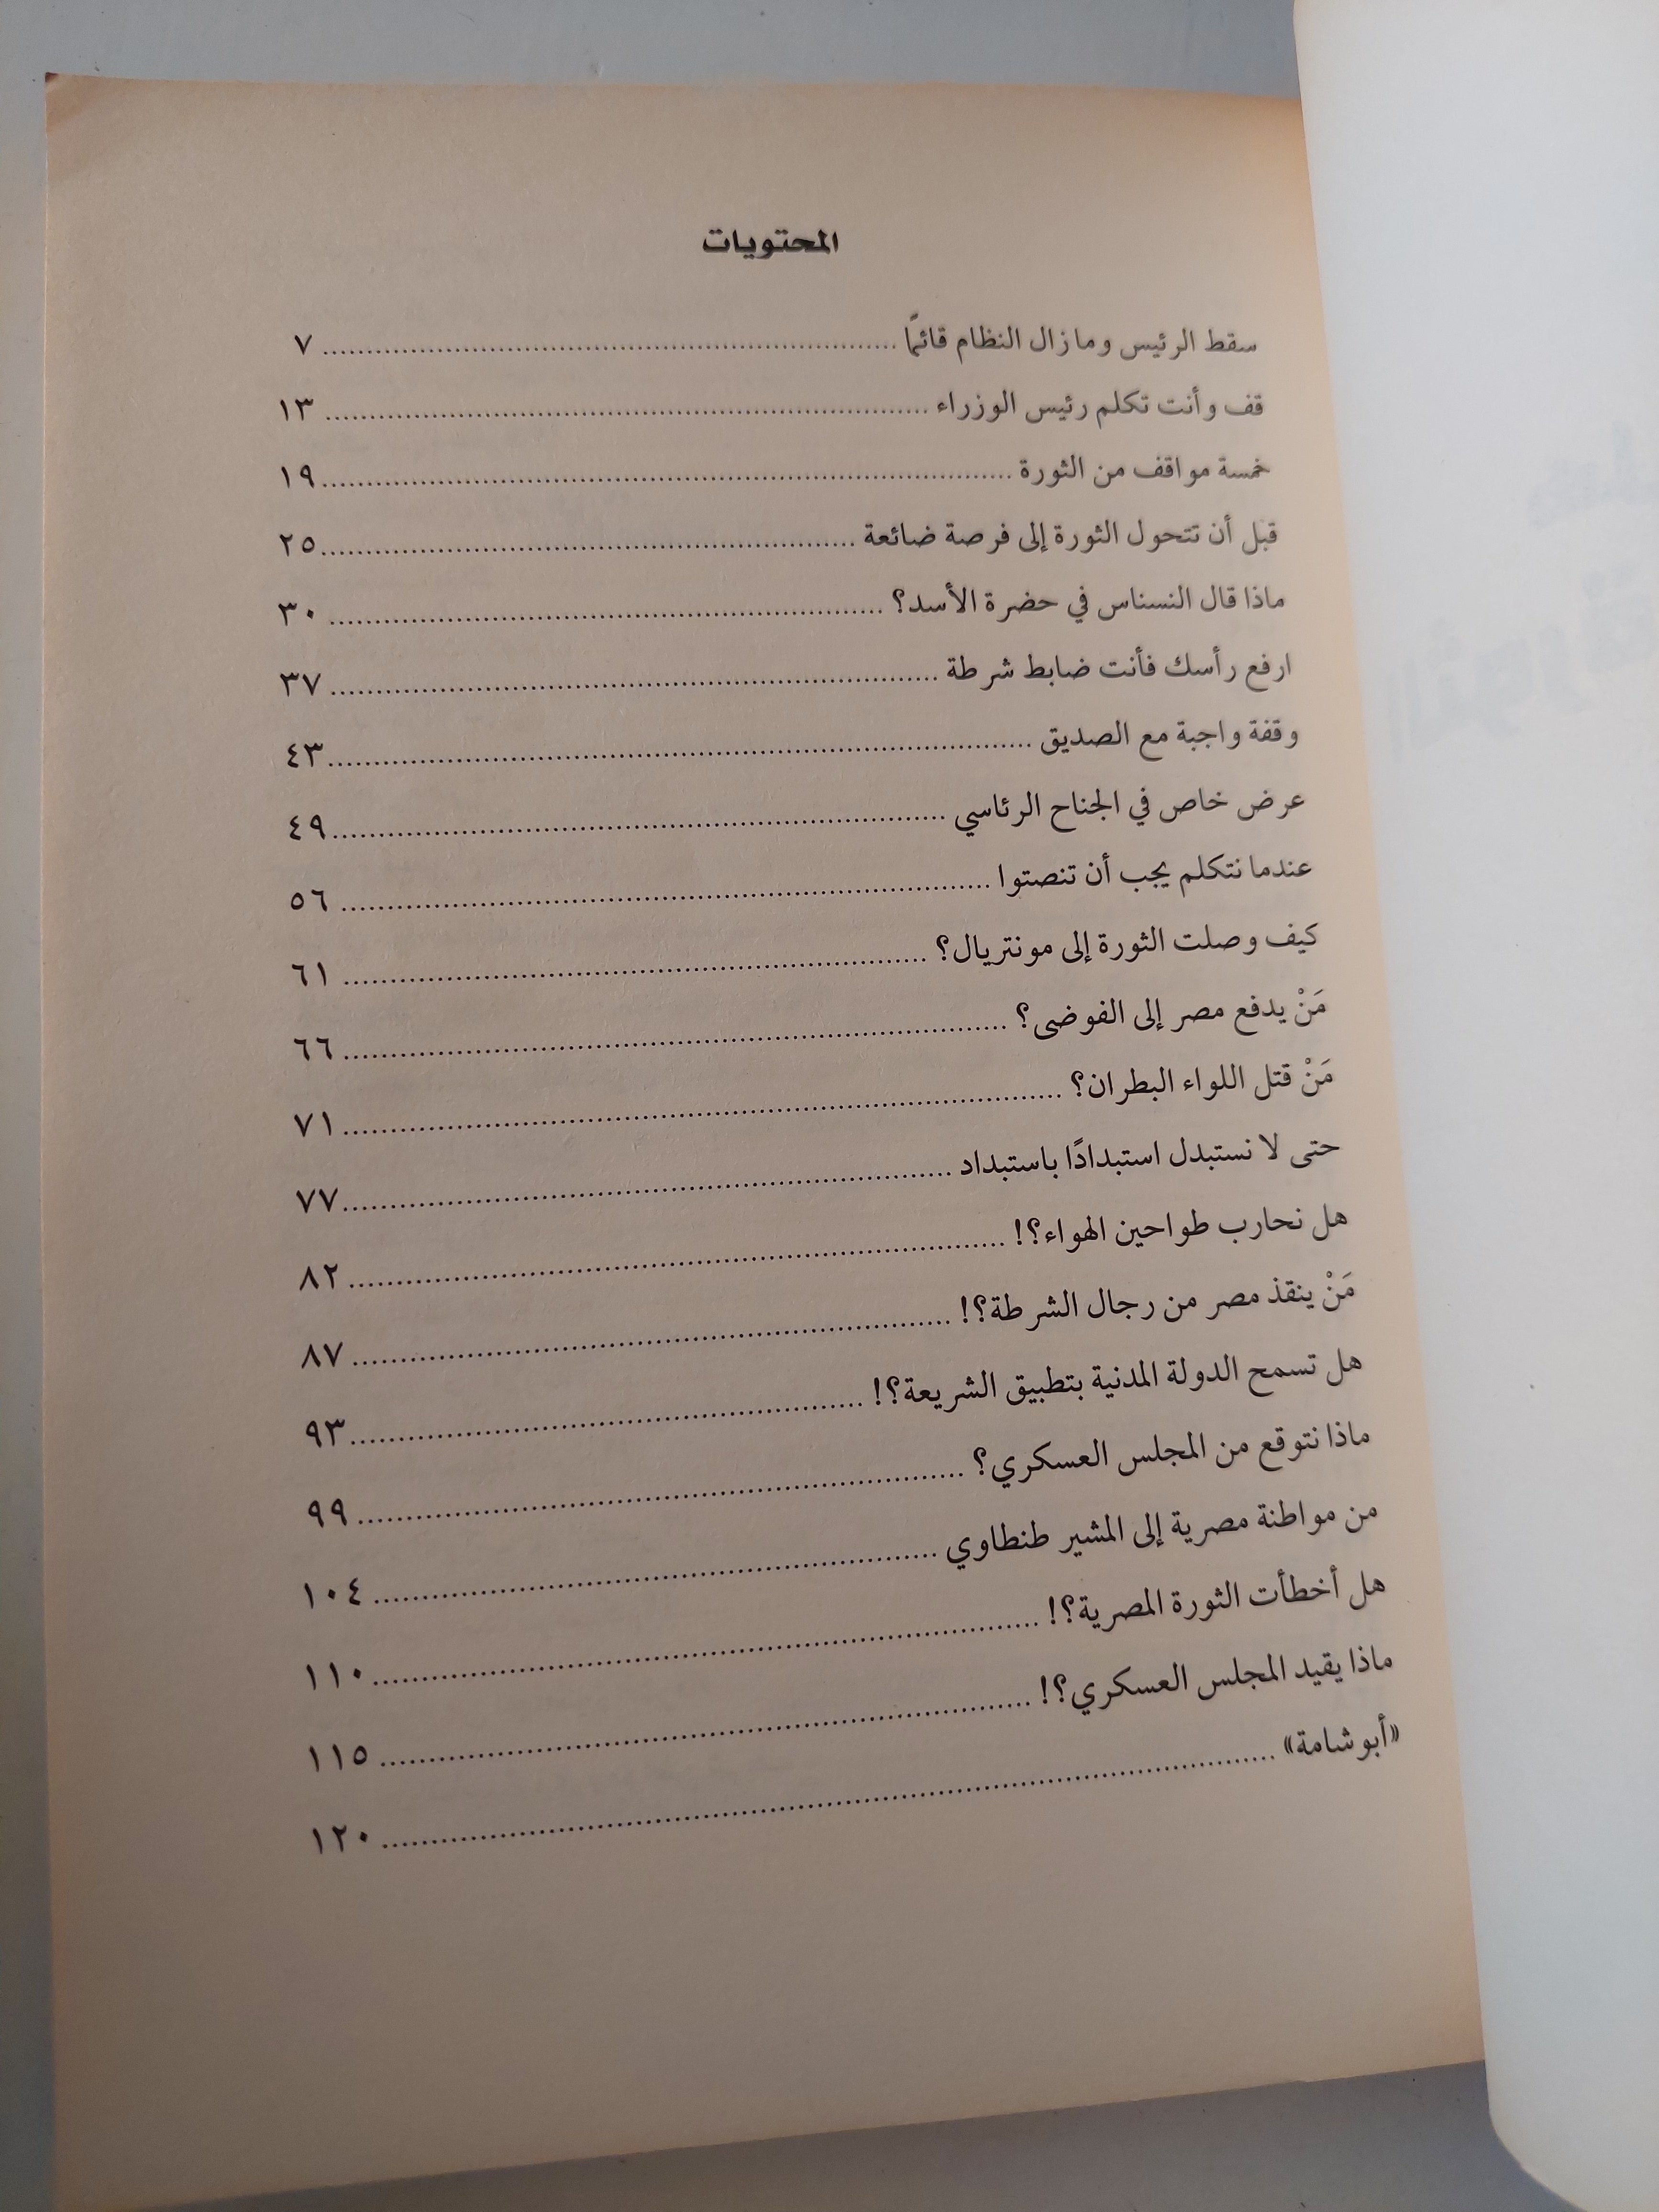 المحتويات
سقط الرئيس وما زال النظام قائمًا ٧
قف وأنت تكلم رئيس الوزراء ١٣
خمسة مواقف من الثورة ١٩
قبل أن تتحول الثورة إلى فرصة ضائعة ٢٥
ماذا قال النسناس في حضرة الأسد؟ ٣٠
ارفع رأسك فأنت ضابط شرطة ٣٧
وقفة واجبة مع الصديق ٤٣
عرض خاص في الجناح الرئاسي ٤٩
عندما نتكلم يجب أن تنصتوا ٥٦
كيف وصلت الثورة إلى مونتريال؟ ٦١
مَنْ يدفع مصر إلى الفوضى؟ ٦٦
مَنْ قتل اللواء البطران؟ ٧١
حتى لا نستبدل استبدادًا باستبداد ٧٧
هل نحارب طواحين الهواء؟! ٨٢
مَنْ ينقذ مصر من رجال الشرطة؟! ٨٧
هل تسمح الدولة المدنية بتطبيق الشريعة؟! ٩٣
ماذا نتوقع من المجلس العسكري؟ ٩٩
من مواطنة مصرية إلى المشير طنطاوي ١٠٤
هل أخطأت الثورة المصرية؟! ١١٠
ماذا يقيد المجلس العسكري؟! ١١٥
«أبو شامة» ١٢٠